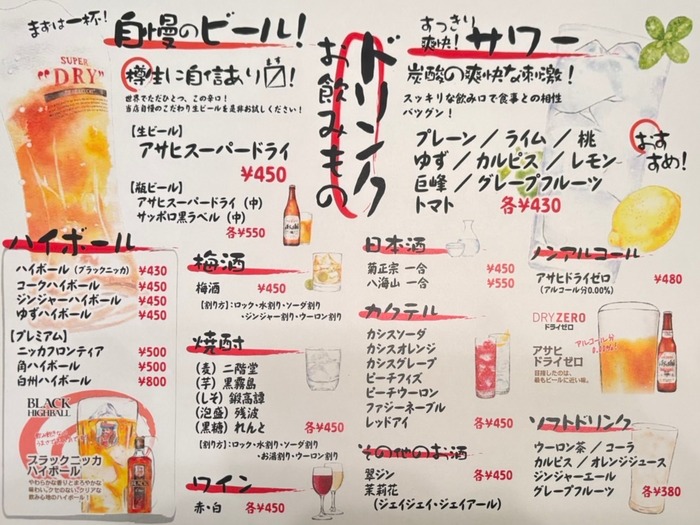 まずは一杯!
自慢のビール!
樽生に自信あり!
世界でただひとつ、この辛口!
当店自慢のこだわり生ビールを是非お試しください!
SUPER
"DRY"
【生ビール】
アサヒスーパードライ
¥450
【瓶ビール】
アサヒスーパードライ(中)
サッポロ黒ラベル(中)
各¥550
ドリンク
お飲みもの
すっきり爽快!
サワー
炭酸の爽快な刺激!
スッキリな飲み口で食事との相性
バツグン!
プレーン/ライム/桃
ゆず/カルピス/レモン
巨峰/グレープフルーツ
トマト 各¥430
おすすめ!
ハイボール
ハイボール(ブラックニッカ) ¥430
コークハイボール ¥450
ジンジャーハイボール ¥450
ゆずハイボール ¥450
【プレミアム】
ニッカフロンティア ¥500
角ハイボール ¥500
白州ハイボール ¥800
BLACK
HIGHBALL
ブラックニッカ
ハイボール
やわらかな香りとまろやかな
味わい。クセのない、クリアな
飲み心地のハイボール!
梅酒
梅酒 ¥450
【割り方】:ロック・水割り・ソーダ割り
・ジンジャー割り・ウーロン割り
焼酎
(麦)二階堂
(芋)黒霧島
(しそ)鍛高譚
(泡盛)残波
(黒糖)れんと 各¥450
【割り方】:ロック・水割り・ソーダ割り
・お湯割り・ウーロン割り
ワイン
赤・白 各¥450
日本酒
菊正宗 一合 ¥450
八海山 一合 ¥550
カクテル
カシスソーダ
カシスオレンジ
カシスグレープ
ピーチフィズ
ピーチウーロン
ファジーネーブル
レッドアイ 各¥450
その他のお酒
翠ジン 各¥450
茉莉花
(ジェイジェイ・ジェイアール)
ノンアルコール
アサヒドライゼロ ¥480
(アルコール分0.00%)
DRY ZERO
ドライゼロ
アルコール分
0.00%!
アサヒ
ドライゼロ
目指したのは、
最もビールに近い味。
ソフトドリンク
ウーロン茶/コーラ
カルピス/オレンジジュース
ジンジャーエール
グレープフルーツ 各¥380